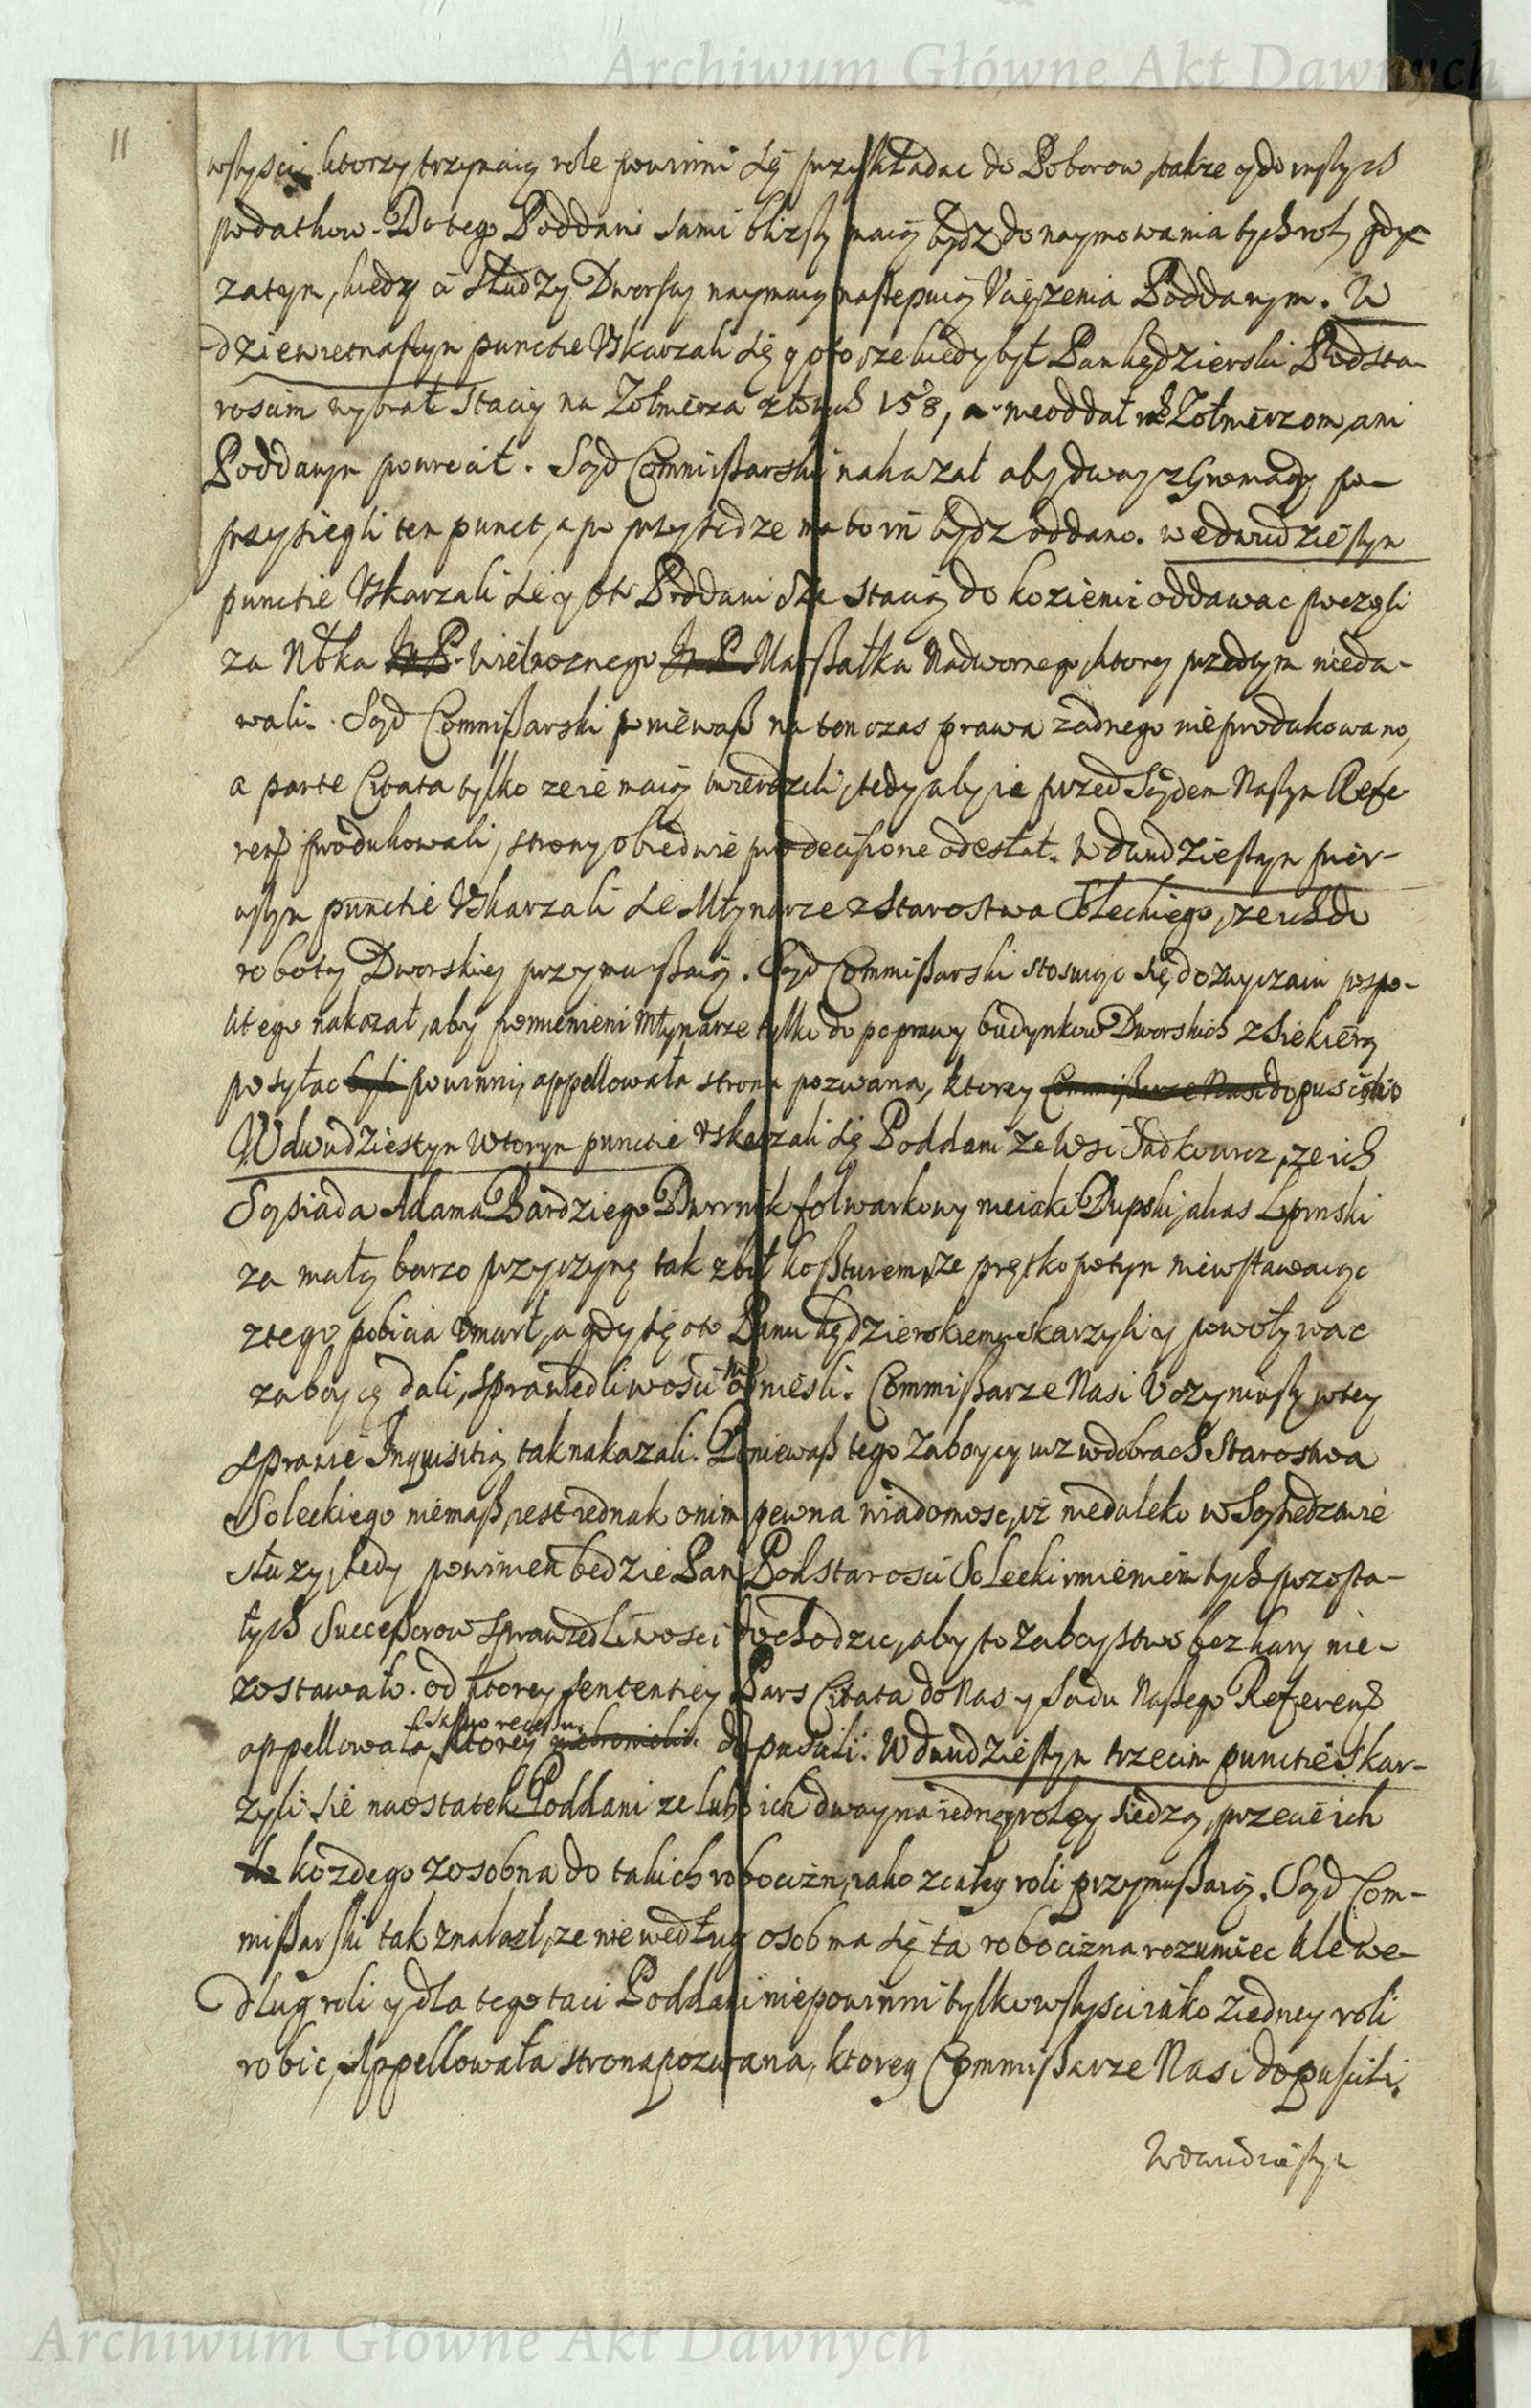 Archiwum Główne Akt Dawnych
11
wszyscy ktorzy trzymaią role powinni się przykładac do Poborow, także y do inszych
podatkow. Do tego Poddani sami bliższy maią bydz do naymowania tych rol, gdyż
zatym, kiedy ie słudzy Dworscy naymaią nastepuią Uciązenia Poddanym. W
dziewietnastym punctie Uskarzali się o to, ze kiedy był Pan Kędzierski Podsta-
roscim wybrał Stacią na Zołnierza złotych 158, a nie oddał ich Zołnierzom, ani
Poddanym powrocił. Sąd Commissarski nakazał aby dway z Gromady po-
przysiegli ten punct, a po przysiedze ma to im bydz oddano. w edwudziestym
punctie Uskarzali sie y oto Poddani ze Stacią do Kozienic oddawac poczęli
za Nbka Wielmoznego Marszałka Nadwornego, ktorey przedtym nieda-
wali. Sąd Commissarski poniewasz na ten czas prawa zadnego nie produkowano,
a parte Citata tylko ze ie maią twierdzeli, tedy aby ie przed Sądem Naszym Refe
ren. produkowali, strony obiedwie pro decisione odesłał. W dwudziestym pier-
wszym punctie Uskarzali sie Młynarze z Starostwa Soleckiego, ze ich do
roboty Dworskiey przymuszaią. Sąd Commissarski stosuiąc się do zwyczaiu pospo-
litego nakazał, aby pomienieni Młynarze tylko do poprawy budynkow Dworskich z siekierą
posyłac byli powinni, appellowała strona pozwana, ktorey Commissarze Nasi dopuscili
W dwudziestym wtorym punctie Uskarzali się Poddani ze Wsi Sadkowicz, ze ich
Sąsiada Adama Bardziego Dwornik folwarkowy nieiaki Dupski alias Lipinski
za małą barzo przyczyną tak zbił kosturem, ze prętko potym niewstawaiąc
z tego pobicia umarł, a gdy się oto Panu Kędzierskiemu skarzyli y powoływac
zaboycę dali, sprawiedliwosci nie odniesli. Commissarze Nasi Uczyniwszy w tey
sprawie Inquisitią tak nakazali. Poniewasz tego Zaboycy iuz w dobrach Starostwa
Soleckiego niemasz, iest iednak o nim pewna wiadomosc, iż niedaleko w Sąsiedztwie
słuzy, tedy powinien bedzie Pan Podstarosci Solecki imieniem tych pozosta-
łych Successorow Sprawiedliwosci dochodzic, aby to Zaboystwo bez kary nie-
zostawało. od ktorey sententiey Pars Citata do Nas y Sądu Naszego Referen.
salvo recessu.
appellowała, ktorey dopuscili. W dwudziestym trzecim punctie skar-
zyli sie na ostatek Poddani ze lubo ich dway na iedney roley siedzą, przecie ich
kozdego zosobna do takich robocizn, iako z całey roli przymuszaią. Sąd Com-
missarski tak znalazł, ze nie według osob ma się ta robocizna rozumiec Ale we-
dług roli y dla tego taci Poddani niepowinni tylko wszyscy iako z iedney roli
robic, Appellowała strona pozwana, ktorey Commissarze Nasi dopuscili.
W dwudziestym
Archiwum Główne Akt Dawnych